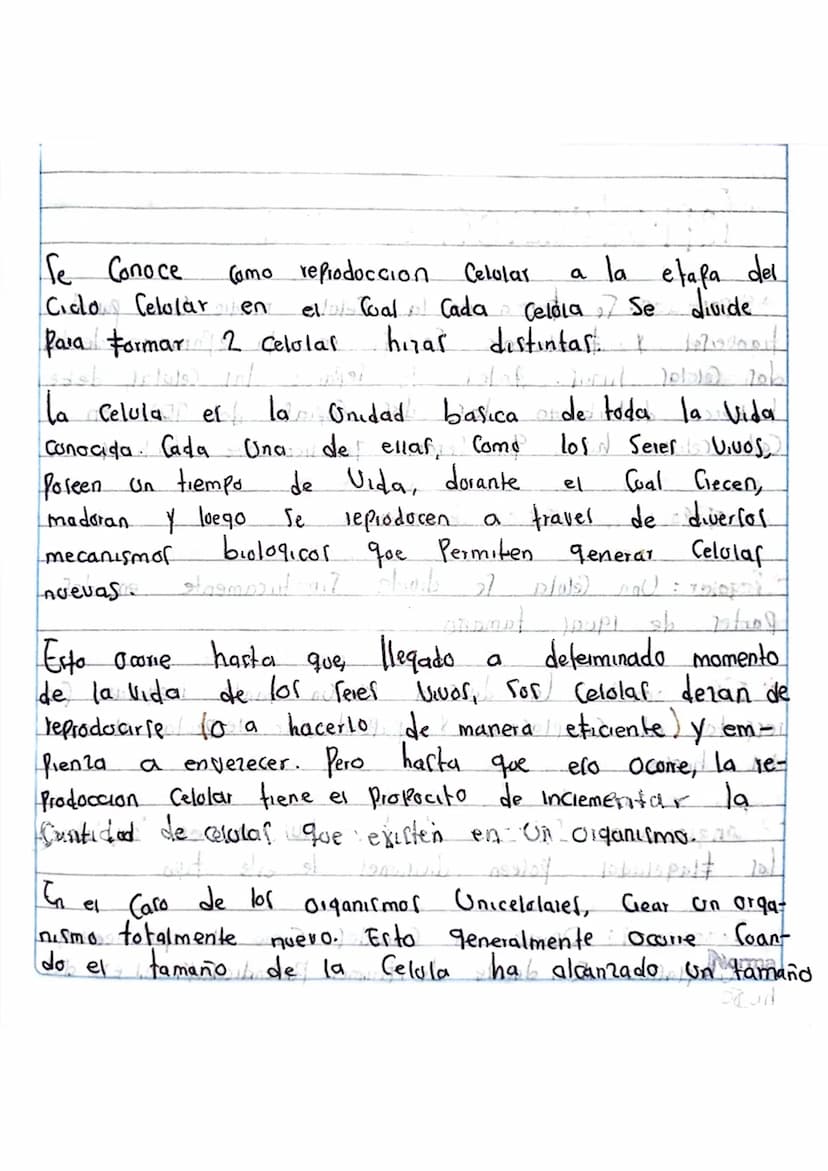 Se Conoce como reproduccion Celular a la etapa del
Ciclo Celular en el Cual Cada Celula Se divide
Para formar 2 Celulas hijas distintas.
La Celula es la Unidad basica de toda la Vida
Conocida. Cada Una de ellas, Como los Seres Vivos,
Poseen un tiempo de Vida, durante el Cual Crecen,
maduran y luego Se reproducen a traves de diversos
mecanismos biologicos que Permiten generar Celulas
nuevas.
Esto ocurre hasta que, llegado a determinado momento
de la Vida de los Seres Vivos, sus Celulas dejan de
reproducirse (o a hacerlo de manera eficiente) y em-
pienza a envejecer. Pero hasta que eso ocurre, la re-
Produccion Celular tiene el Propocito de incrementar la
Cantidad de celulas que existen en Un organismo.
En el Caso de los organismos Unicelulares, Crear un orga-
nismo totalmente nuevo. Esto generalmente ocurre Cuan-
do el tamaño de la Celula ha alcanzado Un tamaño
Norma